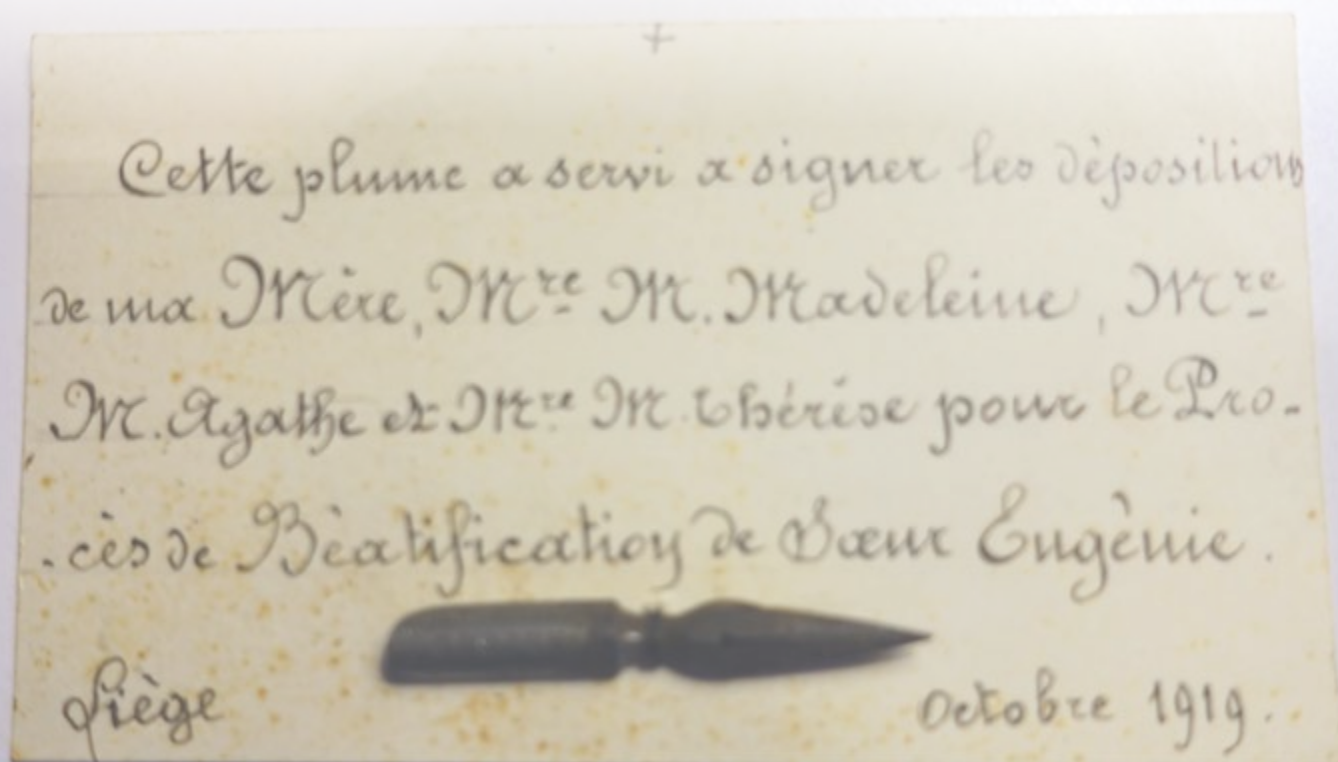 +
Cette plume a servi a signer les dépositions
de ma Mère, Mre M. Madeleine, Mre
M. Agathe et Mre M. Thérèse pour le Pro-
.cès de Béatification de Sœur Eugènie.
Liège octobre 1919.